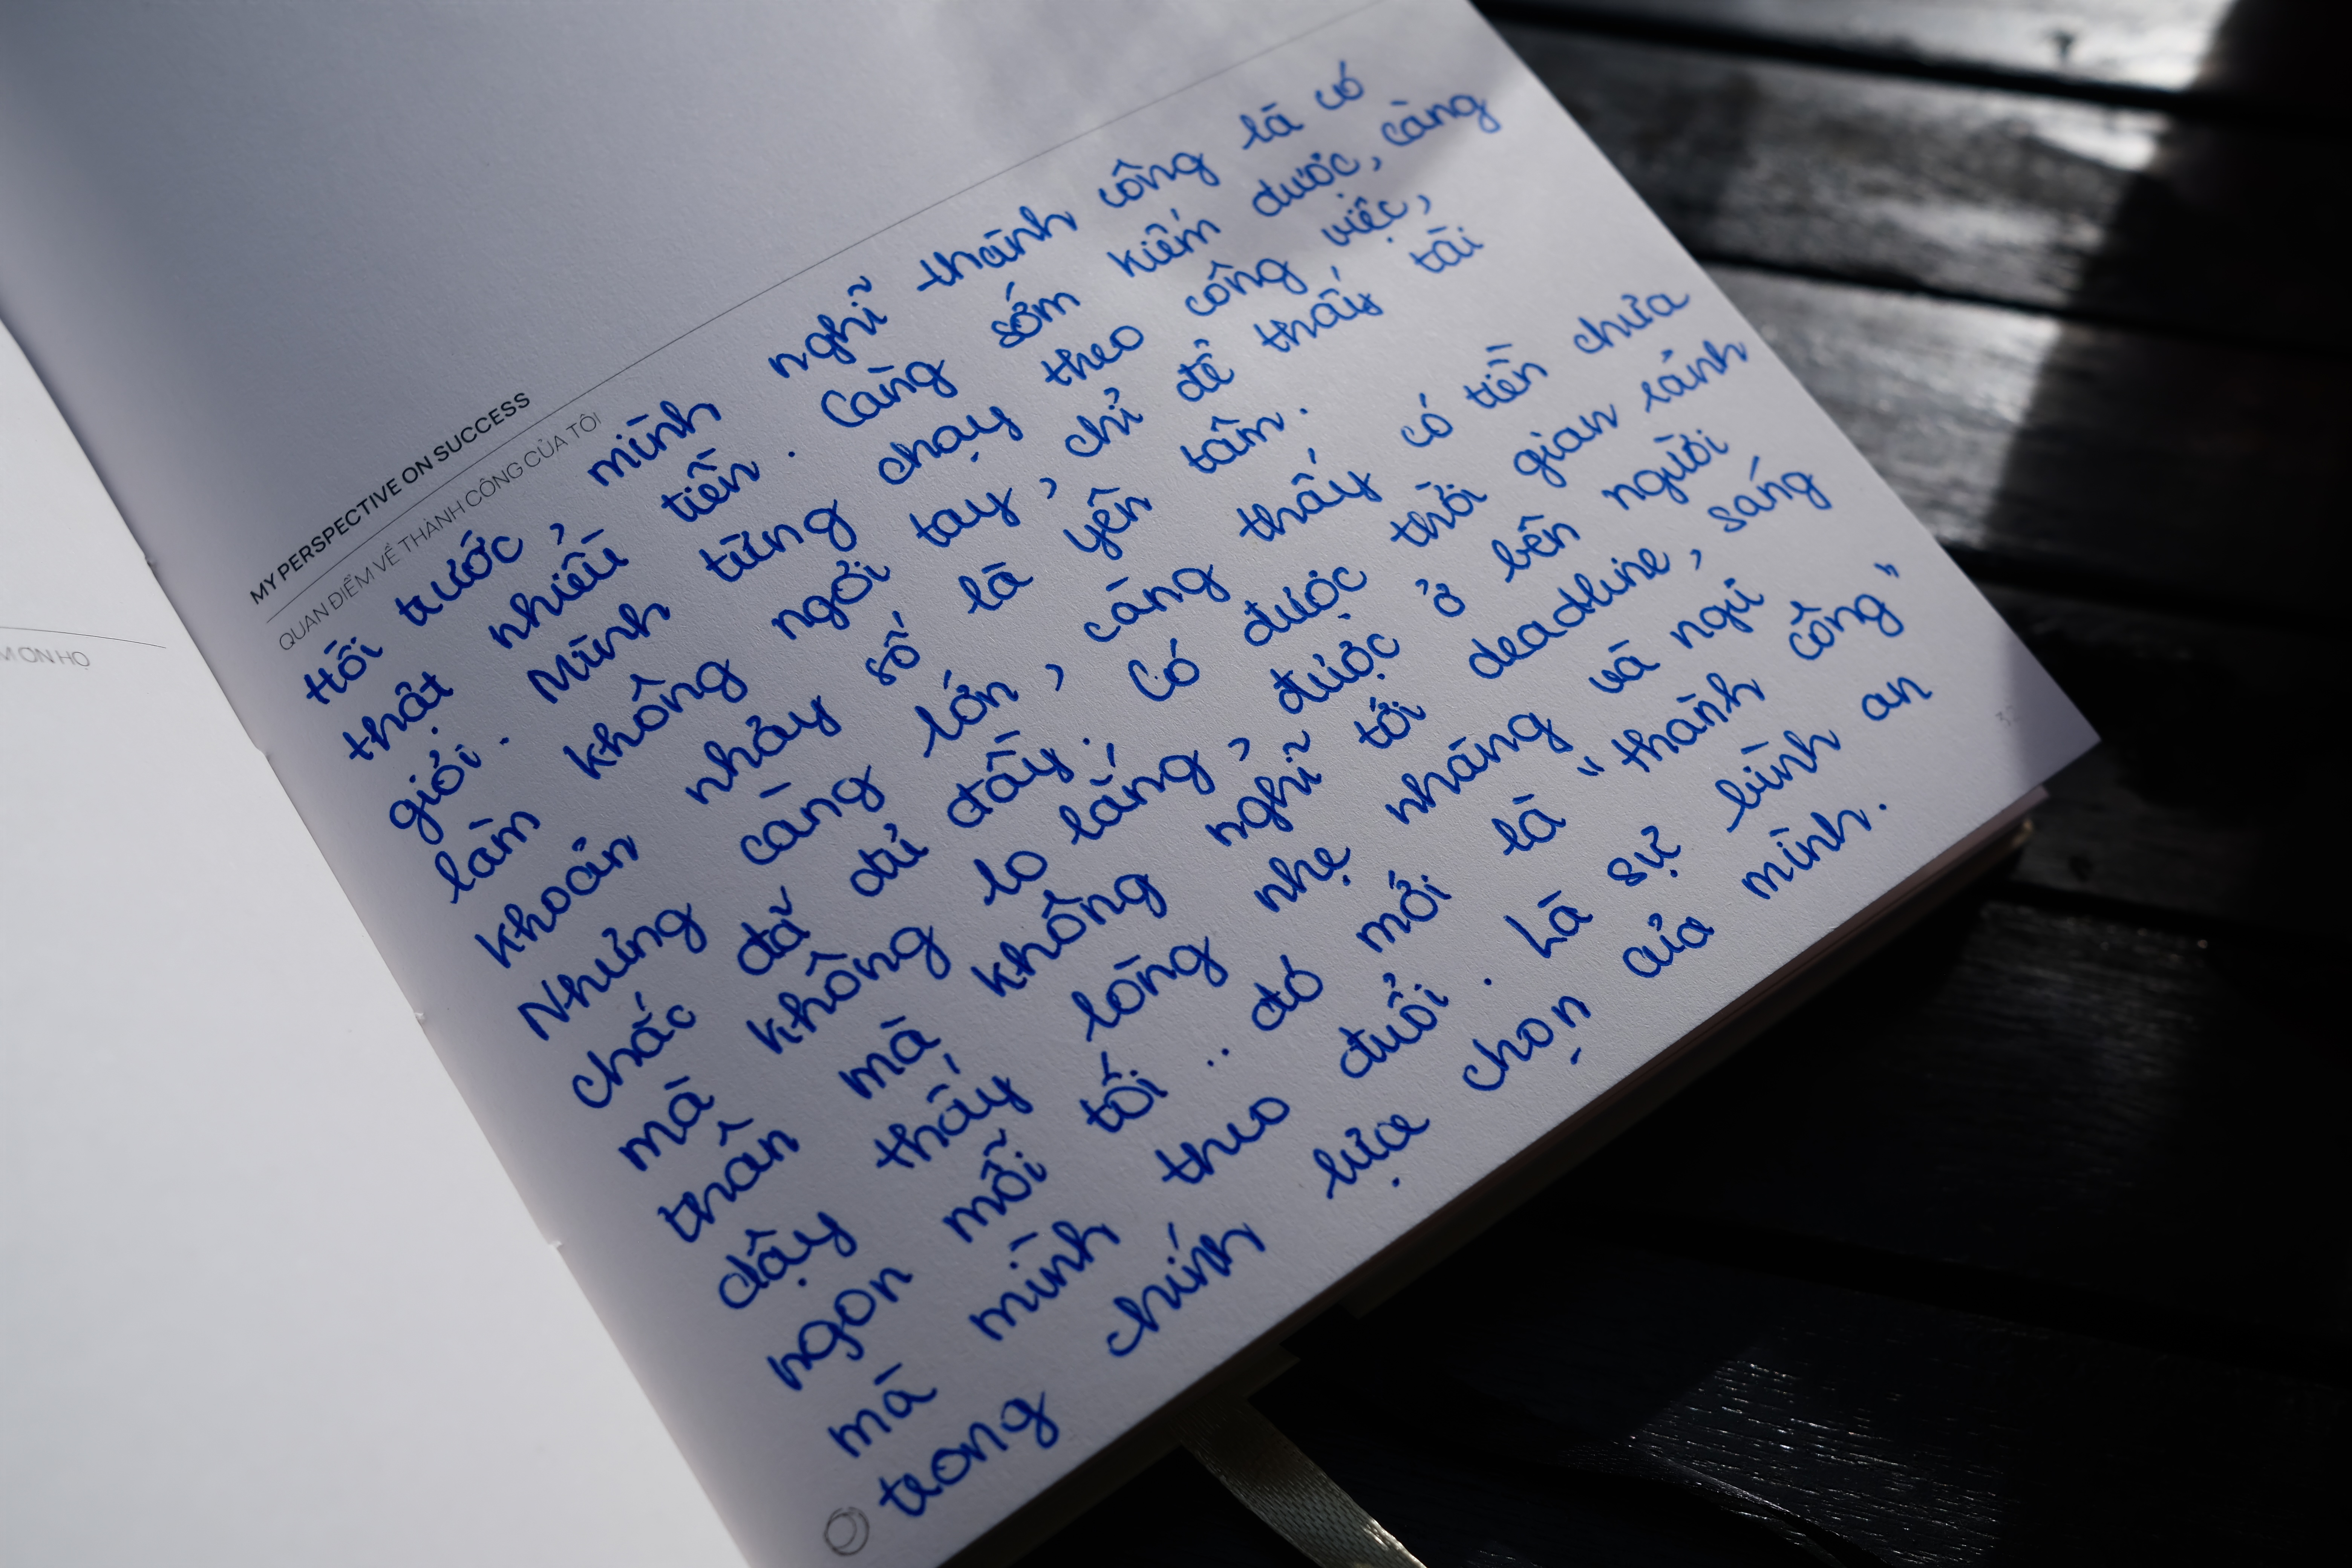 MY PERSPECTIVE ON SUCCESS
QUAN ĐIỂM VỀ THÀNH CÔNG CỦA TÔI
Hồi trước, mình nghĩ thành công là có
thật nhiều tiền. Càng sớm kiếm được, càng
giỏi. Mình từng chạy theo công việc,
làm không ngơi tay, chỉ để thấy tài
khoản nhảy số là yên tâm.
Nhưng càng lớn, càng thấy có tiền chưa
chắc đã đủ đầy. Có được thời gian rảnh
mà không lo lắng, được ở bên người
thân mà không nghĩ tới deadline, sáng
dậy thấy lòng nhẹ nhàng và ngủ
ngon mỗi tối.. đó mới là "thành công"
mà mình theo đuổi. Là sự bình an
trong chính lựa chọn của mình.
ƠN HỌ